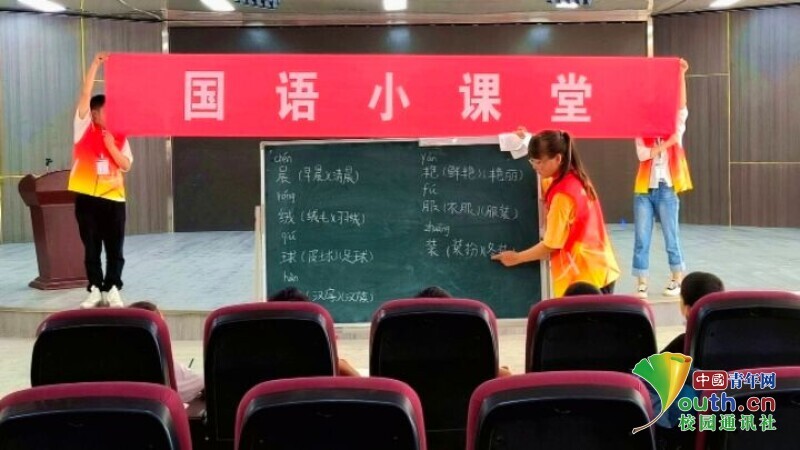 国语小课堂
chén
晨(早晨)(清晨)
róng
绒(绒毛)(羽绒)
qiú
球(皮球)(足球)
hàn
(汉字)(汉族)
yàn
艳(鲜艳)(艳丽)
fú
服(衣服)(服装)
zhuāng
装(装扮)
中國青年网
youth.cn
校园通讯社